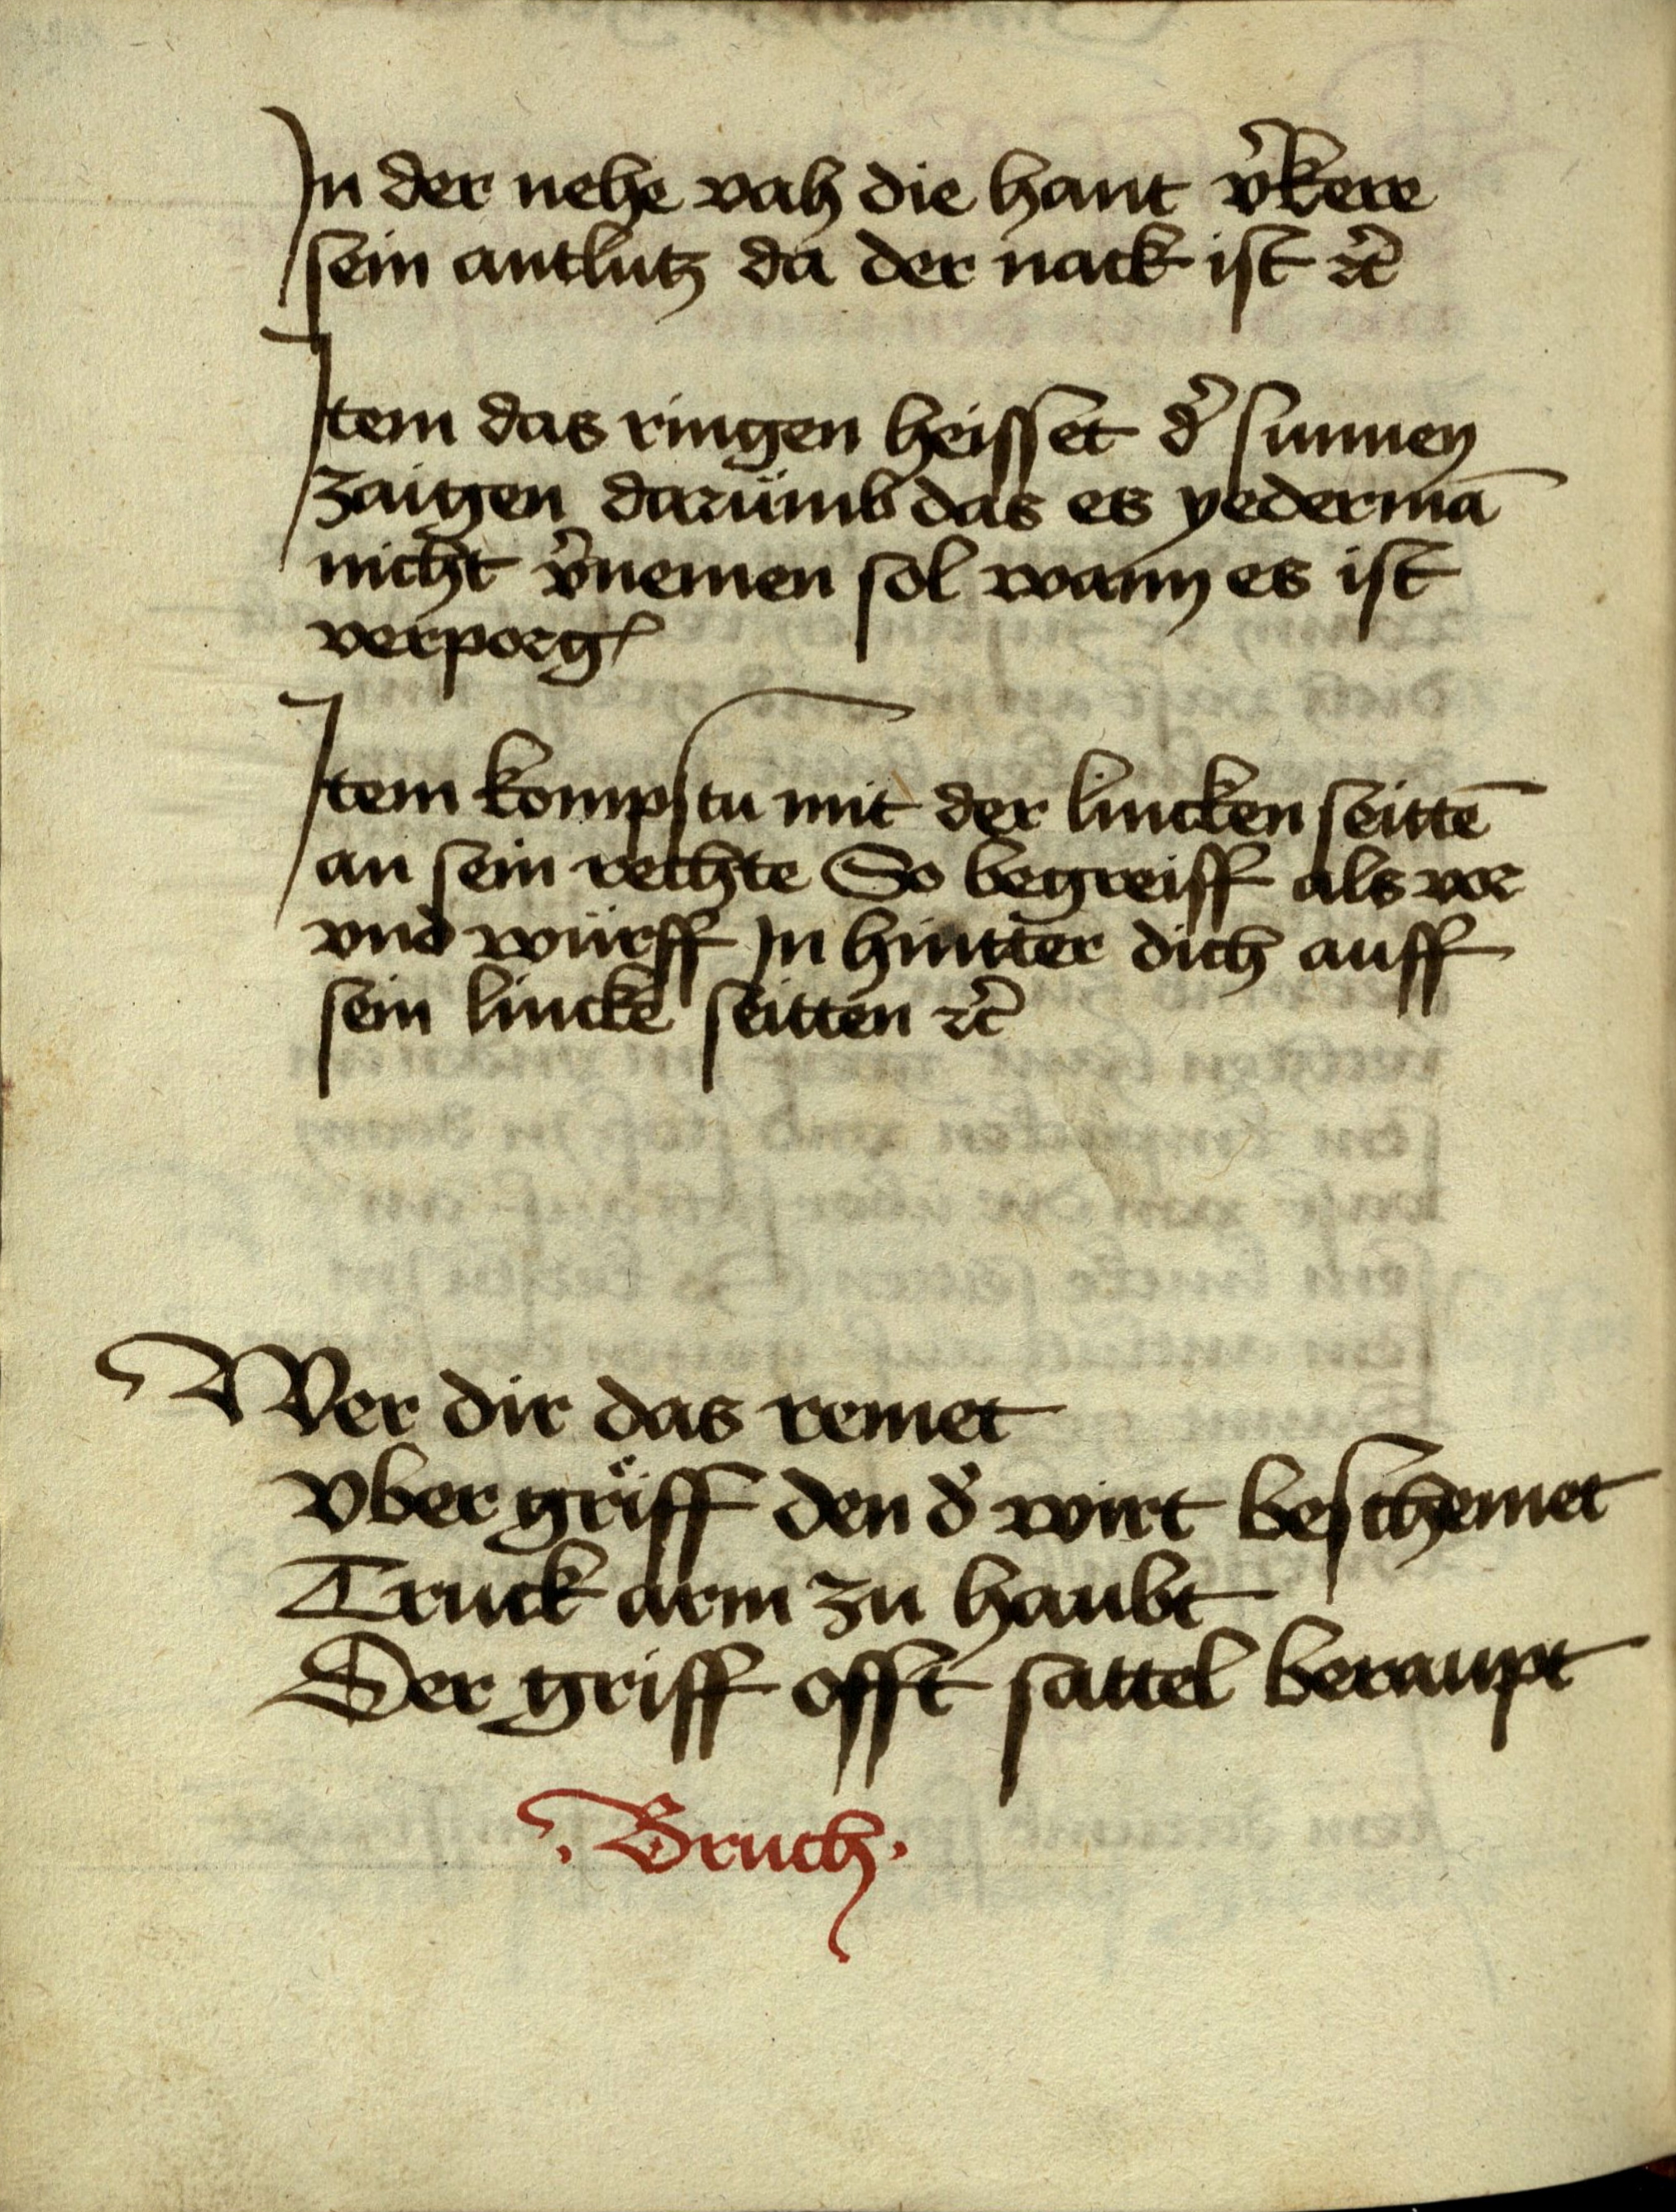 In der nehe vah die hant v̾kere
sein antlutz da der nack ist ⁊c̃
Item das ringen heisset d̾ sunnen
zaigen darümb das es yedermā
nicht v̾nemen sol wann es ist
verporgꝭ
Item kompstu mit der lincken seittē
an sein rechte So begreiff als vor
vnd würff In hintter dich auff
sein lincke seitten ⁊c̃
Wer dir das remet
Vber griff den d̾ wirt beschemet
Truck arm zu haubt
Der griff offt sattel beraupt
. Bruch .